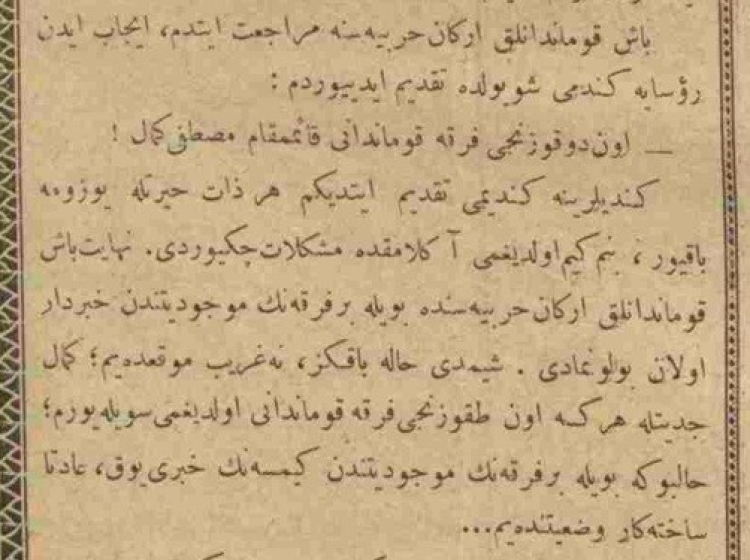 باش قوماندانلق اركان حربيه‌سنه مراجعت ايتدم، ايجاب ايدن
رؤسايه كندمى شويولده تقديم ايدييوردم :
— اون دوقوزنجى فرقه قوماندانى قائممقام مصطفى كمال !
كنديلرينه كنديمى تقديم ايتديكم هر ذات حيرتله يوزومه
باقيور ، بنم كيم اولديغمى آ كلامقده مشكلات چكيوردى. نهايت باش
قوماندانلق اركان حربيه‌سنده بويله برفرقه‌نك موجوديتندن خبردار
اولان بولونمادى . شيمدى حاله باقكز، نه غريب موقعده‌يم؛ كمال
جديتله هركسه اون طقوزنجى فرقه قوماندانى اولديغمى سويله‌يورم؛
حالبوكه بويله برفرقه‌نك موجوديتندن كيمسه‌نك خبرى يوق، عادتا
ساخته‌كار وضعيتنده‌يم...